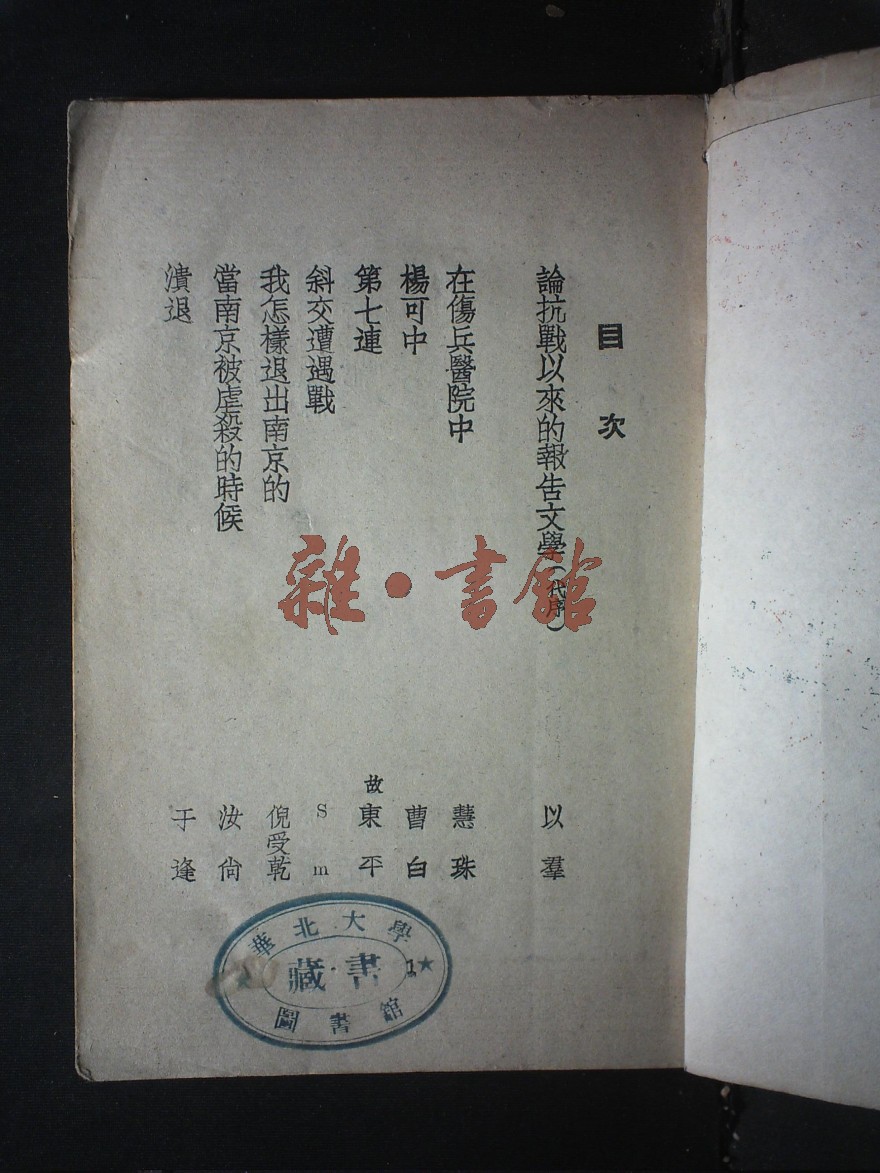 目次
論抗戰以來的報告文學(代序) 以羣
在傷兵醫院中 慧珠
楊可中 曹白
第七連 故東平
斜交遭遇戰 S m
我怎樣退出南京的 倪受乾
當南京被虐殺的時候 汝尚
潰退 于逢
雜·書館
華北大學
藏書
圖書館
1